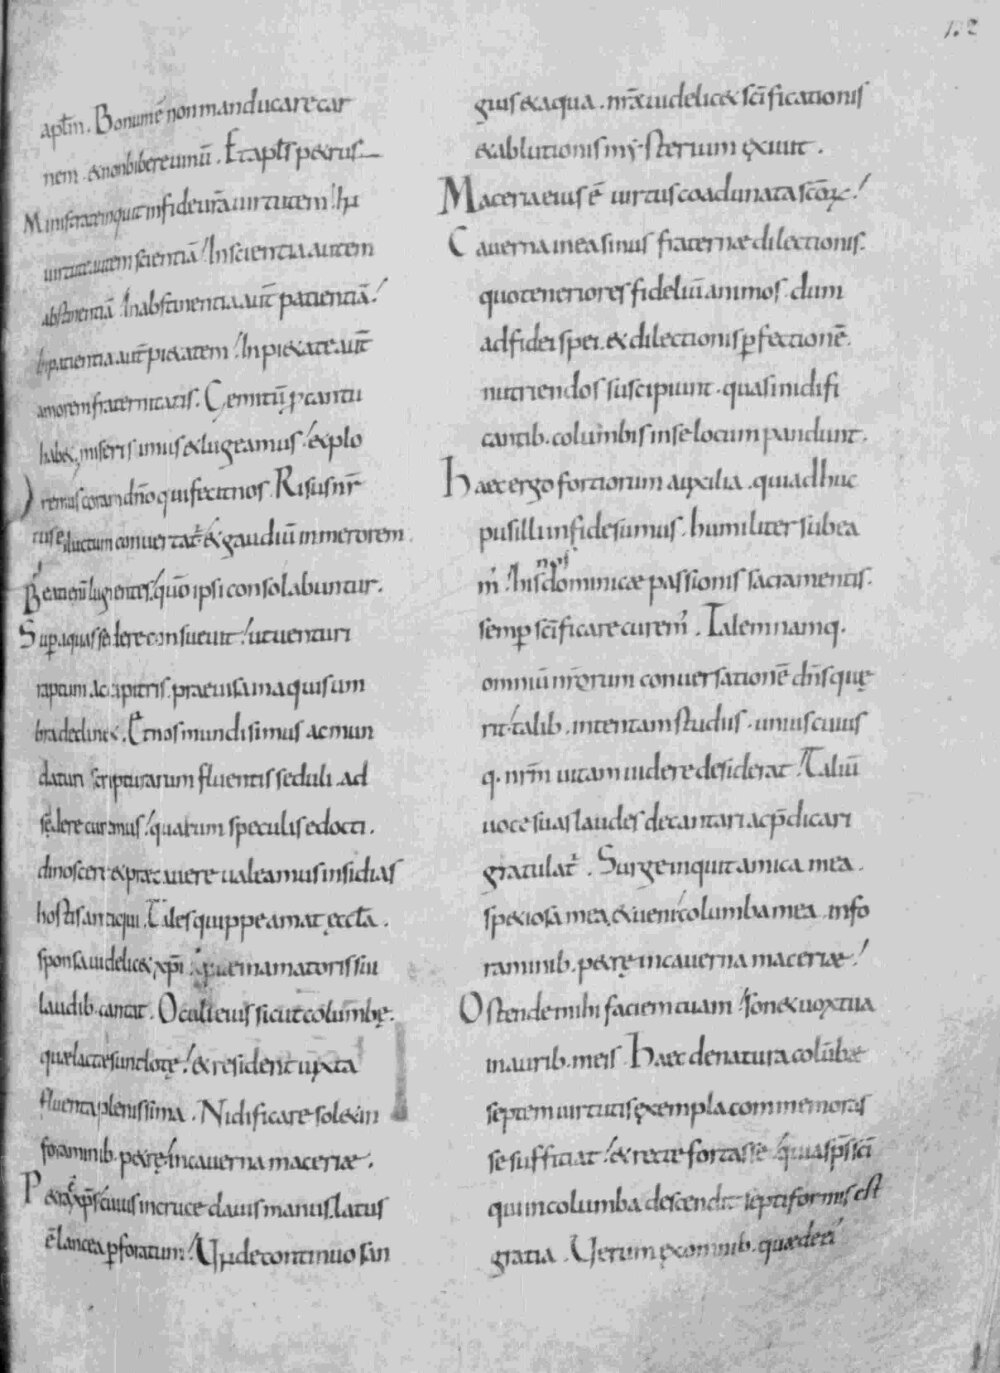 132
aptm̄. Bonum ē non manducare car
nem. & non bibere uinū. Et apts̄ petrus
Ministrate inquit in fide ur̄a uirtutem! In
uirtute autem scientiā! In scientia autem
abstinentiā! In abstinentia aut̄ patientiā!
In patientia aut̄ pietatem! In pietate aut̄
amorem fraternitatis. Gemitū p cantu
habet, miseri simus & lugeamus! & plo
remus coram dn̄o qui fecit nos. Risus nr̄
ruse in luctum conuertat̄. & gaudiū in merorem.
Beati enī lugientes! quo ipsi consolabuntur.
Sup aquas sedere consueuit! ut uenturi
raptum accipitris. praeuisa in aquis um
bra declinet. Et nos mundi simus ac mun
darum scripturarum fluentis seduli ad
sedere curamus! quarum speculis edocti.
dinoscere & praecauere ualeamus insidias
hostis antiqui. Tales quippe amat ęccl̄a.
sponsa uidelicet xp̄i. quae in amatoris sui
laudib. cantat. Oculi eius sicut columbę.
quae lacte sunt lotę! & resident iuxta
fluenta plenissima. Nidificare solet in
foraminib. petrę! in cauerna maceriae.
Petra xp̄s ē! cuius in cruce clauis manus. latus
ē lancea pforatum! Unde continuo san
guis & aqua. nr̄ae uidelicet sc̄ificationis
& ablutionis mysterium ęxiuit.
Maceria eius ē uirtus coadunata sc̄orum!
Cauerna in ea sinus fraternae dilectionis.
quo teneriores fideliū animos. dum
ad fidei spei. & dilectionis pfectionē.
nutriendos suscipiunt. quasi nidifi
cantib. columbis in se locum pandunt.
Haec ergo fortiorum auxilia. qui adhuc
pusilli in fide sumus. humiliter subea
nos
m̄! his dominicae passionis sacramentis.
semp sc̄ificare curem̄. Talem namq.
omniū nr̄orum conuersationē dn̄s quę
rit! talib. intentam studiis. uniuscuius
q. nr̄m uitam uidere desiderat! Taliū
uoce suas laudes decantari ac p̄dicari
gratulat̄. Surge inquit amica mea.
speciosa mea, & ueni! columba mea. in fo
raminib. petrę in cauerna maceriae!
Ostende mihi faciem tuam! sonet uox tua
in aurib. meis. Haec de natura colūbae
septem uirtutis ęxempla commemoras
se sufficiat! & recte fortasse! quia sp̄s sc̄i
qui in columba descendit septiformis est
gratia. Uerum ęx omnib. quae de ri